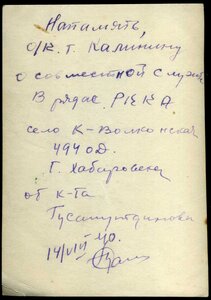 На память,
о/к. т. Калинину
о совместной службе
В рядах РККА
село К-Волконская
494 ОД.
г. Хабаровск
от к-та
14/VIII 40.